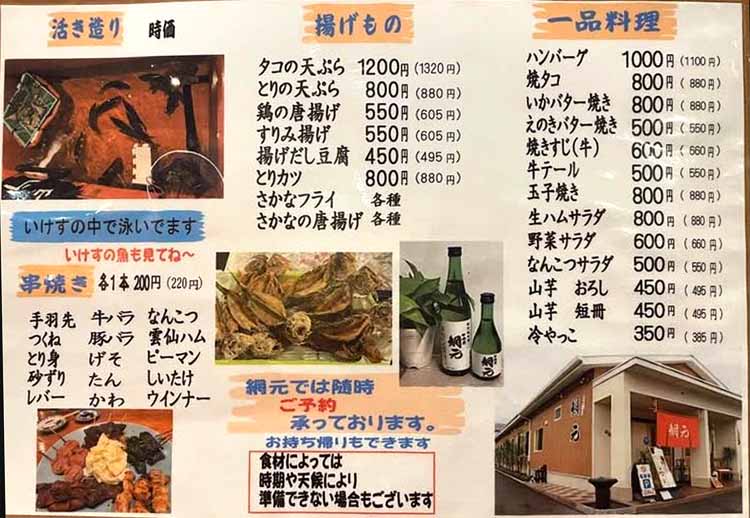 活き造り 時価
いけすの中で泳いでます
いけすの魚も見てね～
串焼き 各1本 200円 (220円)
手羽先 牛バラ なんこつ
つくね 豚バラ 雲仙ハム
とり身 げそ ピーマン
砂ずり たん しいたけ
レバー かわ ウインナー
揚げもの
タコの天ぷら 1200円 (1320円)
とりの天ぷら 800円 (880円)
鶏の唐揚げ 550円 (605円)
すりみ揚げ 550円 (605円)
揚げだし豆腐 450円 (495円)
とりカツ 800円 (880円)
さかなフライ 各種
さかなの唐揚げ 各種
網元
網元
網元では随時
ご予約
承っております。
お持ち帰りもできます
食材によっては
時期や天候により
準備できない場合もございます
一品料理
ハンバーグ 1000円 (1100円)
焼タコ 800円 (880円)
いかバター焼き 800円 (880円)
えのきバター焼き 500円 (550円)
焼きすじ(牛) 600円 (660円)
牛テール 500円 (550円)
玉子焼き 800円 (880円)
生ハムサラダ 800円 (880円)
野菜サラダ 600円 (660円)
なんこつサラダ 500円 (550円)
山芋 おろし 450円 (495円)
山芋 短冊 450円 (495円)
冷やっこ 350円 (385円)
網元
網元